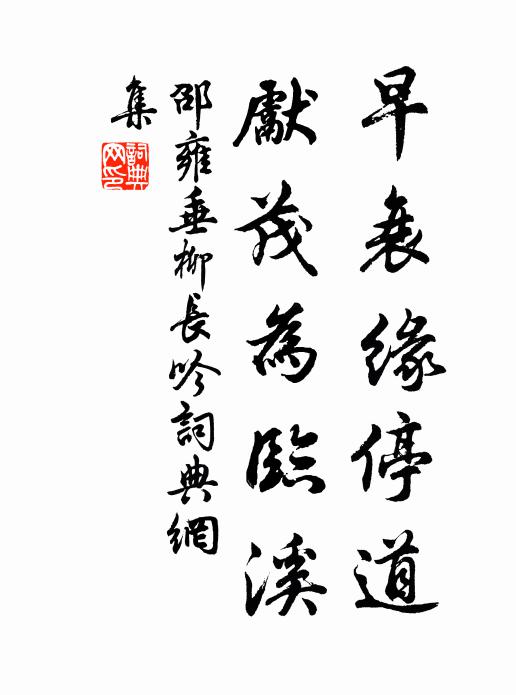 早衰緣停道
獻茂為臨溪
邵雍垂柳長吟詞典網
集
詞典
网印